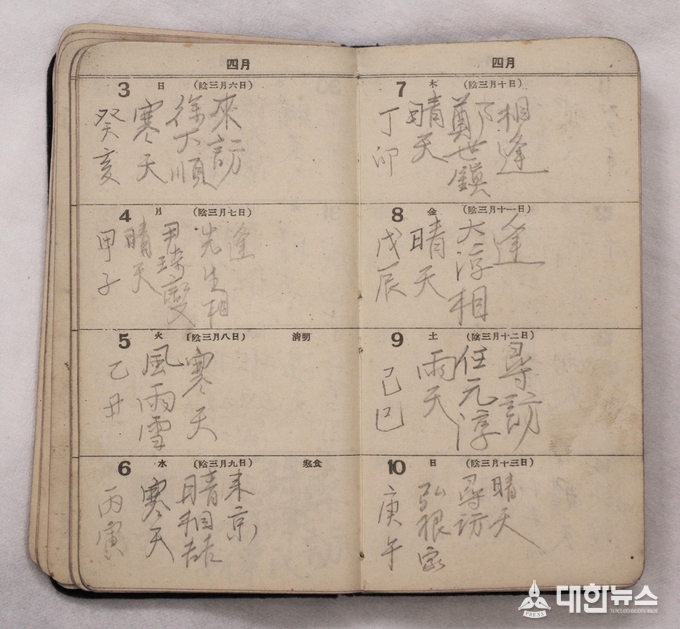 四月
3 日 (陰三月六日)
癸亥
寒天
徐大順
來訪
4 月 (陰三月七日)
甲子
晴天
先生相
逢
5 火 (陰三月八日) 清明
乙丑
風雨雪
寒天
6 水 (陰三月九日) 寒食
丙寅
寒天
來京
四月
7 木 (陰三月十日)
丁卯
晴天
鄭世鎭
相逢
8 金 (陰三月十一日)
戊辰
晴天
大淳相
逢
9 土 (陰三月十二日)
己巳
雨天
任元淳
尋訪
10 日 (陰三月十三日)
庚午
弘根家
尋訪
晴天
PRESS
대한뉴스